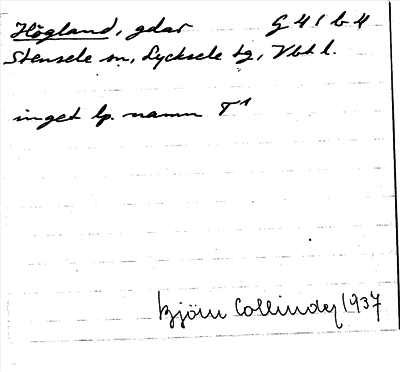 Högland, gdar G 41 b 4
Stensele sn, Lycksele tg, Vbtl.
inget lp. namn T¹
Björn Collinder 1937